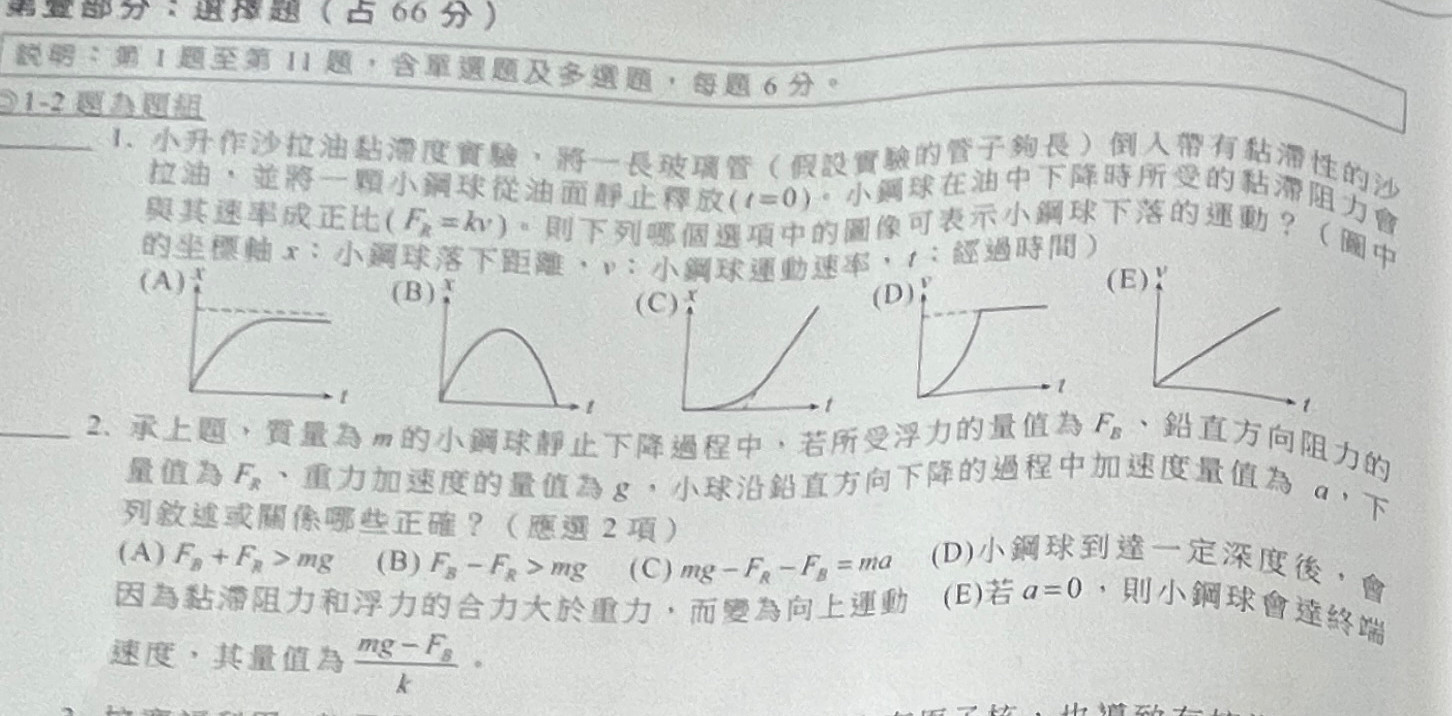 第壹部分：選擇題（占 66 分）
說明：第 1 題至第 11 題，含單選題及多選題，每題 6 分。
◎1-2 題為題組
1. 小升作沙拉油黏滯度實驗，將一長玻璃管（假設實驗的管子夠長）倒入帶有黏滯性的沙
拉油，並將一顆小鋼球從油面靜止釋放(t=0)。小鋼球在油中下降時所受的黏滯阻力會
與其速率成正比(F_R=kv)。則下列哪個選項中的圖像可表示小鋼球下落的運動？（圖中
的坐標軸 x：小鋼球落下距離，v：小鋼球運動速率，t：經過時間）
(A) x t (B) x t (C) x t (D) v t (E) v t
2. 承上題，質量為 m 的小鋼球靜止下降過程中，若所受浮力的量值為 F_B、鉛直方向阻力的
量值為 F_R、重力加速度的量值為 g，小球沿鉛直方向下降的過程中加速度量值為 a，下
列敘述或關係哪些正確？（應選 2 項）
(A) F_B+F_R>mg (B) F_B−F_R>mg (C) mg−F_R−F_B=ma (D)小鋼球到達一定深度後，會
因為黏滯阻力和浮力的合力大於重力，而變為向上運動 (E)若 a=0，則小鋼球會達終端
速度，其量值為 (mg−F_B)/k。